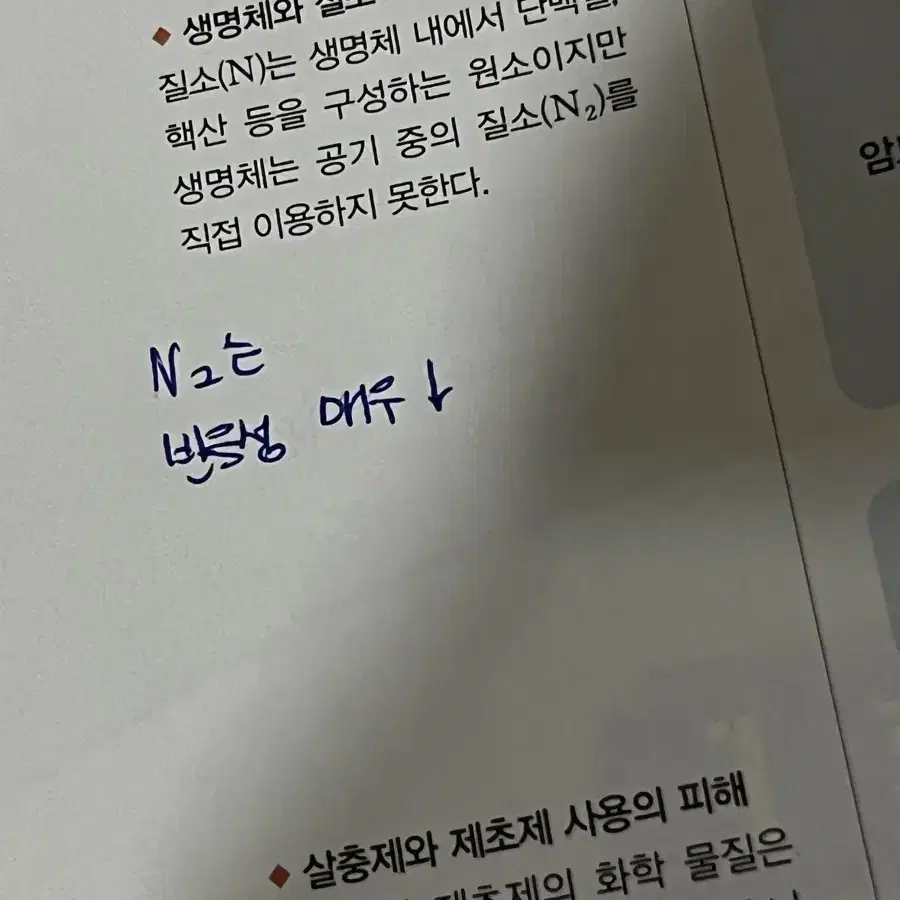 ◆ 생명체와 질소
질소(N)는 생명체 내에서 단백질,
핵산 등을 구성하는 원소이지만
생명체는 공기 중의 질소(N₂)를
직접 이용하지 못한다.
N₂는
반응성 매우 ↓
◆ 살충제와 제초제 사용의 피해
제초제의 화학 물질은